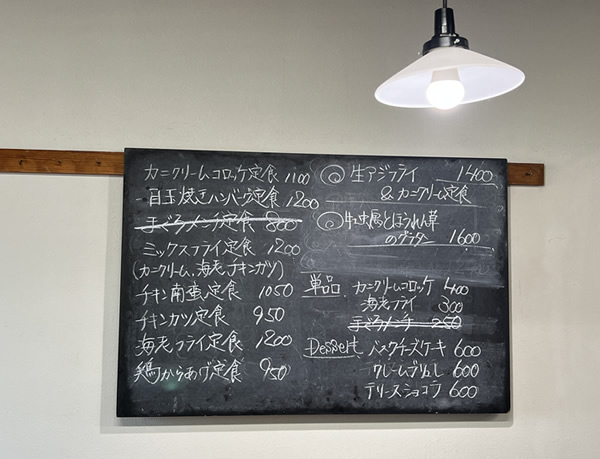 カニクリームコロッケ定食 1100
目玉焼きハンバーグ定食 1200
まぐろメンチ定食 800
ミックスフライ定食 1200
(カニクリーム、海老、チキンカツ)
チキン南蛮定食 1050
チキンカツ定食 950
海老フライ定食 1200
鶏からあげ定食 950
◎生アジフライ 1400
&カニクリーム定食
◎牡蠣とほうれん草
のグラタン 1600
単品 カニクリームコロッケ 400
海老フライ 300
まぐろメンチ 250
Dessert バスクチーズケーキ 600
クレームブリュレ 600
テリーヌショコラ 600